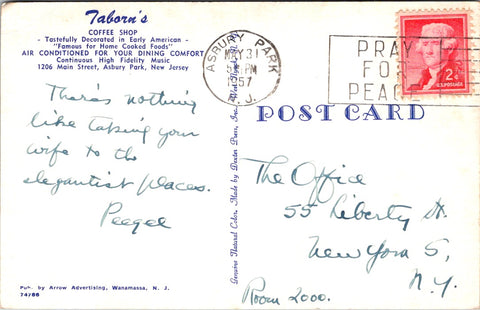 Taborn's
COFFEE SHOP
- Tastefully Decorated in Early American -
"Famous for Home Cooked Foods"
AIR CONDITIONED FOR YOUR DINING COMFORT
Continuous High Fidelity Music
1206 Main Street, Asbury Park, New Jersey
There's nothing
like taking your
wife to the
elegantist places.
Peegee
Pub. by Arrow Advertising, Wanamassa, N. J.
74766
Genuine Natural Color, Made by Dexter Press, Inc.
ASBURY PARK
MAY 31
PM
1957
N. J.
PRAY
FOR
PEACE
2¢
U.S. POSTAGE
POST CARD
The Office
55 Liberty St.
New York 5,
N.Y.
Room 2000.